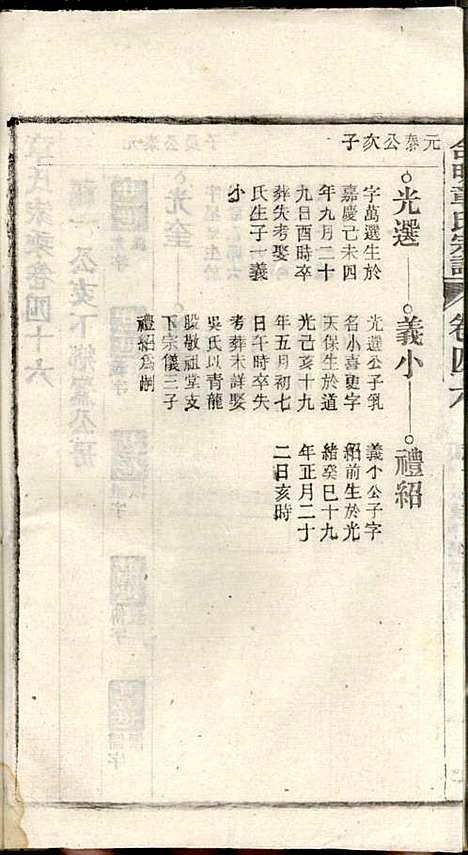 元泰公次子
光選
字萬選生於
嘉慶己未四
年九月二十
九日酉時卒
葬失考娶
氏生子一義
小
義小
光選公子乳
名小喜更字
天保生於道
光己亥十九
年五月初七
日午時卒失
考葬未詳娶
吳氏以青龍
股敬祖堂支
下宗儀三子
禮紹為嗣
禮紹
義小公子字
紹前生於光
緒癸巳十九
年正月二十
二日亥時
卷四十六